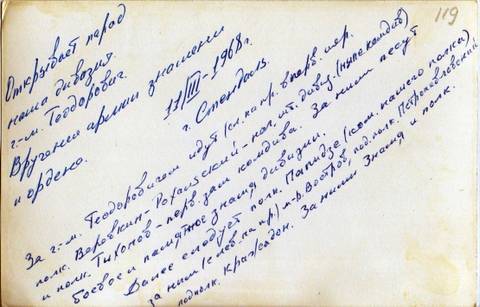 119
Открывает парад
наша дивизия.
г.-м. Теодорович.
Вручение армии знамени
и ордена.
17/III-1968 г.
г. Стендаль.
За г.-м. Теодоровичем идут (сл. на пр. в перв. шер.
полк. Веревкин-Рохальский - нач. шт. дивиз. (ныне комдив)
и полк. Тихонов - перв. зам комдива. За ними несут
боевое и памятное знамя дивизии.
Далее следует полк. Папидзе (ком. нашего полка)
за ним (слев. на пр.) м-р. Востров, подполк. Петропавловский
подполк. За ними Знамя и полк.